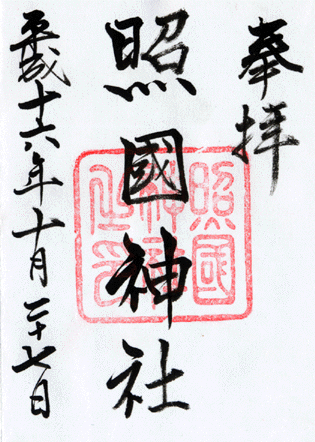 奉拝
照國神社
平成十六年十月二十七日
照國
神社
之印